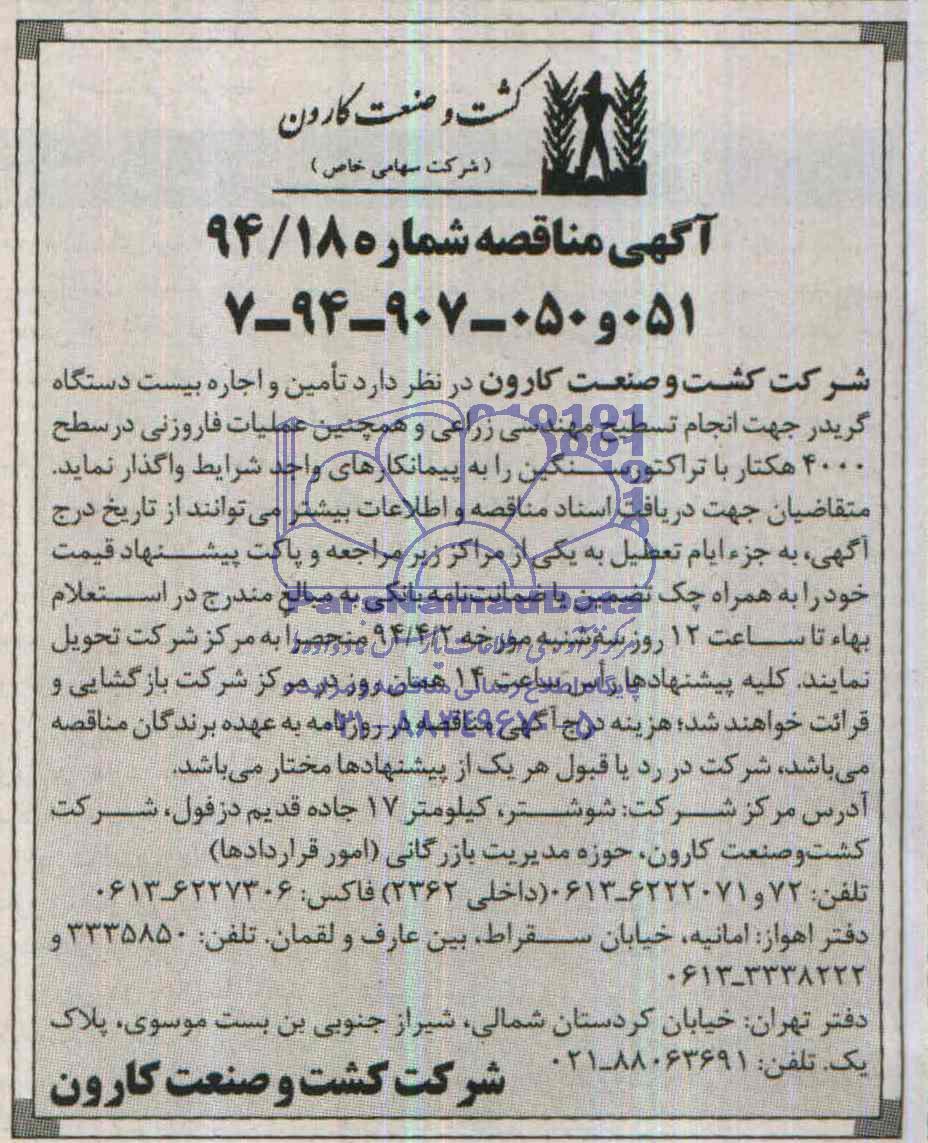 کشت و صنعت کارون
( شرکت سهامی خاص )
آگهی مناقصه شماره ۹۴/۱۸
۰۵۱ و ۰۵۰-۹۰۷-۹۴-۷
شرکت کشت و صنعت کارون در نظر دارد تأمین و اجاره بیست دستگاه
گریدر جهت انجام تسطیح مهندسی زراعی و همچنین عملیات فاروزنی در سطح
۴۰۰۰ هکتار با تراکتور سنگین را به پیمانکارهای واجد شرایط واگذار نماید.
متقاضیان جهت دریافت اسناد مناقصه و اطلاعات بیشتر می‌توانند از تاریخ درج
آگهی، به جزء ایام تعطیل به یکی از مراکز زیر مراجعه و پاکت پیشنهاد قیمت
خود را به همراه چک تضمین یا ضمانت‌نامه بانکی به مبالغ مندرج در استعلام
بهاء تا ساعت ۱۲ روز سه‌شنبه مورخه ۹۴/۴/۲ منحصرا به مرکز شرکت تحویل
نمایند. کلیه پیشنهادها رأس ساعت ۱۴ همان روز در مرکز شرکت بازگشایی و
قرائت خواهند شد؛ هزینه درج آگهی مناقصه در روزنامه به عهده برندگان مناقصه
می‌باشد، شرکت در رد یا قبول هر یک از پیشنهادها مختار می‌باشد.
آدرس مرکز شرکت: شوشتر، کیلومتر ۱۷ جاده قدیم دزفول، شرکت
کشت‌وصنعت کارون، حوزه مدیریت بازرگانی (امور قراردادها)
تلفن: ۷۲ و ۶۲۲۲۰۷۱-۰۶۱۳ (داخلی ۲۳۶۲) فاکس: ۶۲۲۷۳۰۶-۰۶۱۳
دفتر اهواز: امانیه، خیابان سقراط، بین عارف و لقمان. تلفن: ۳۳۳۵۸۵۰ و
۳۳۳۸۲۲۲-۰۶۱۳
دفتر تهران: خیابان کردستان شمالی، شیراز جنوبی بن بست موسوی، پلاک
یک. تلفن: ۸۸۰۶۳۶۹۱-۰۲۱
شرکت کشت و صنعت کارون
ParsNamadData